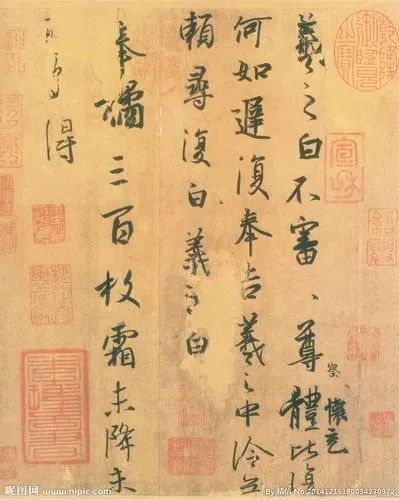 羲之白不審、尊體比復
察
懷充
何如遲復奉告羲之中冷無
賴尋復白羲之白
奉橘三百枚霜未降未
可多得
宣和
昵图网 www.nipic.com
No:20141215180034270972